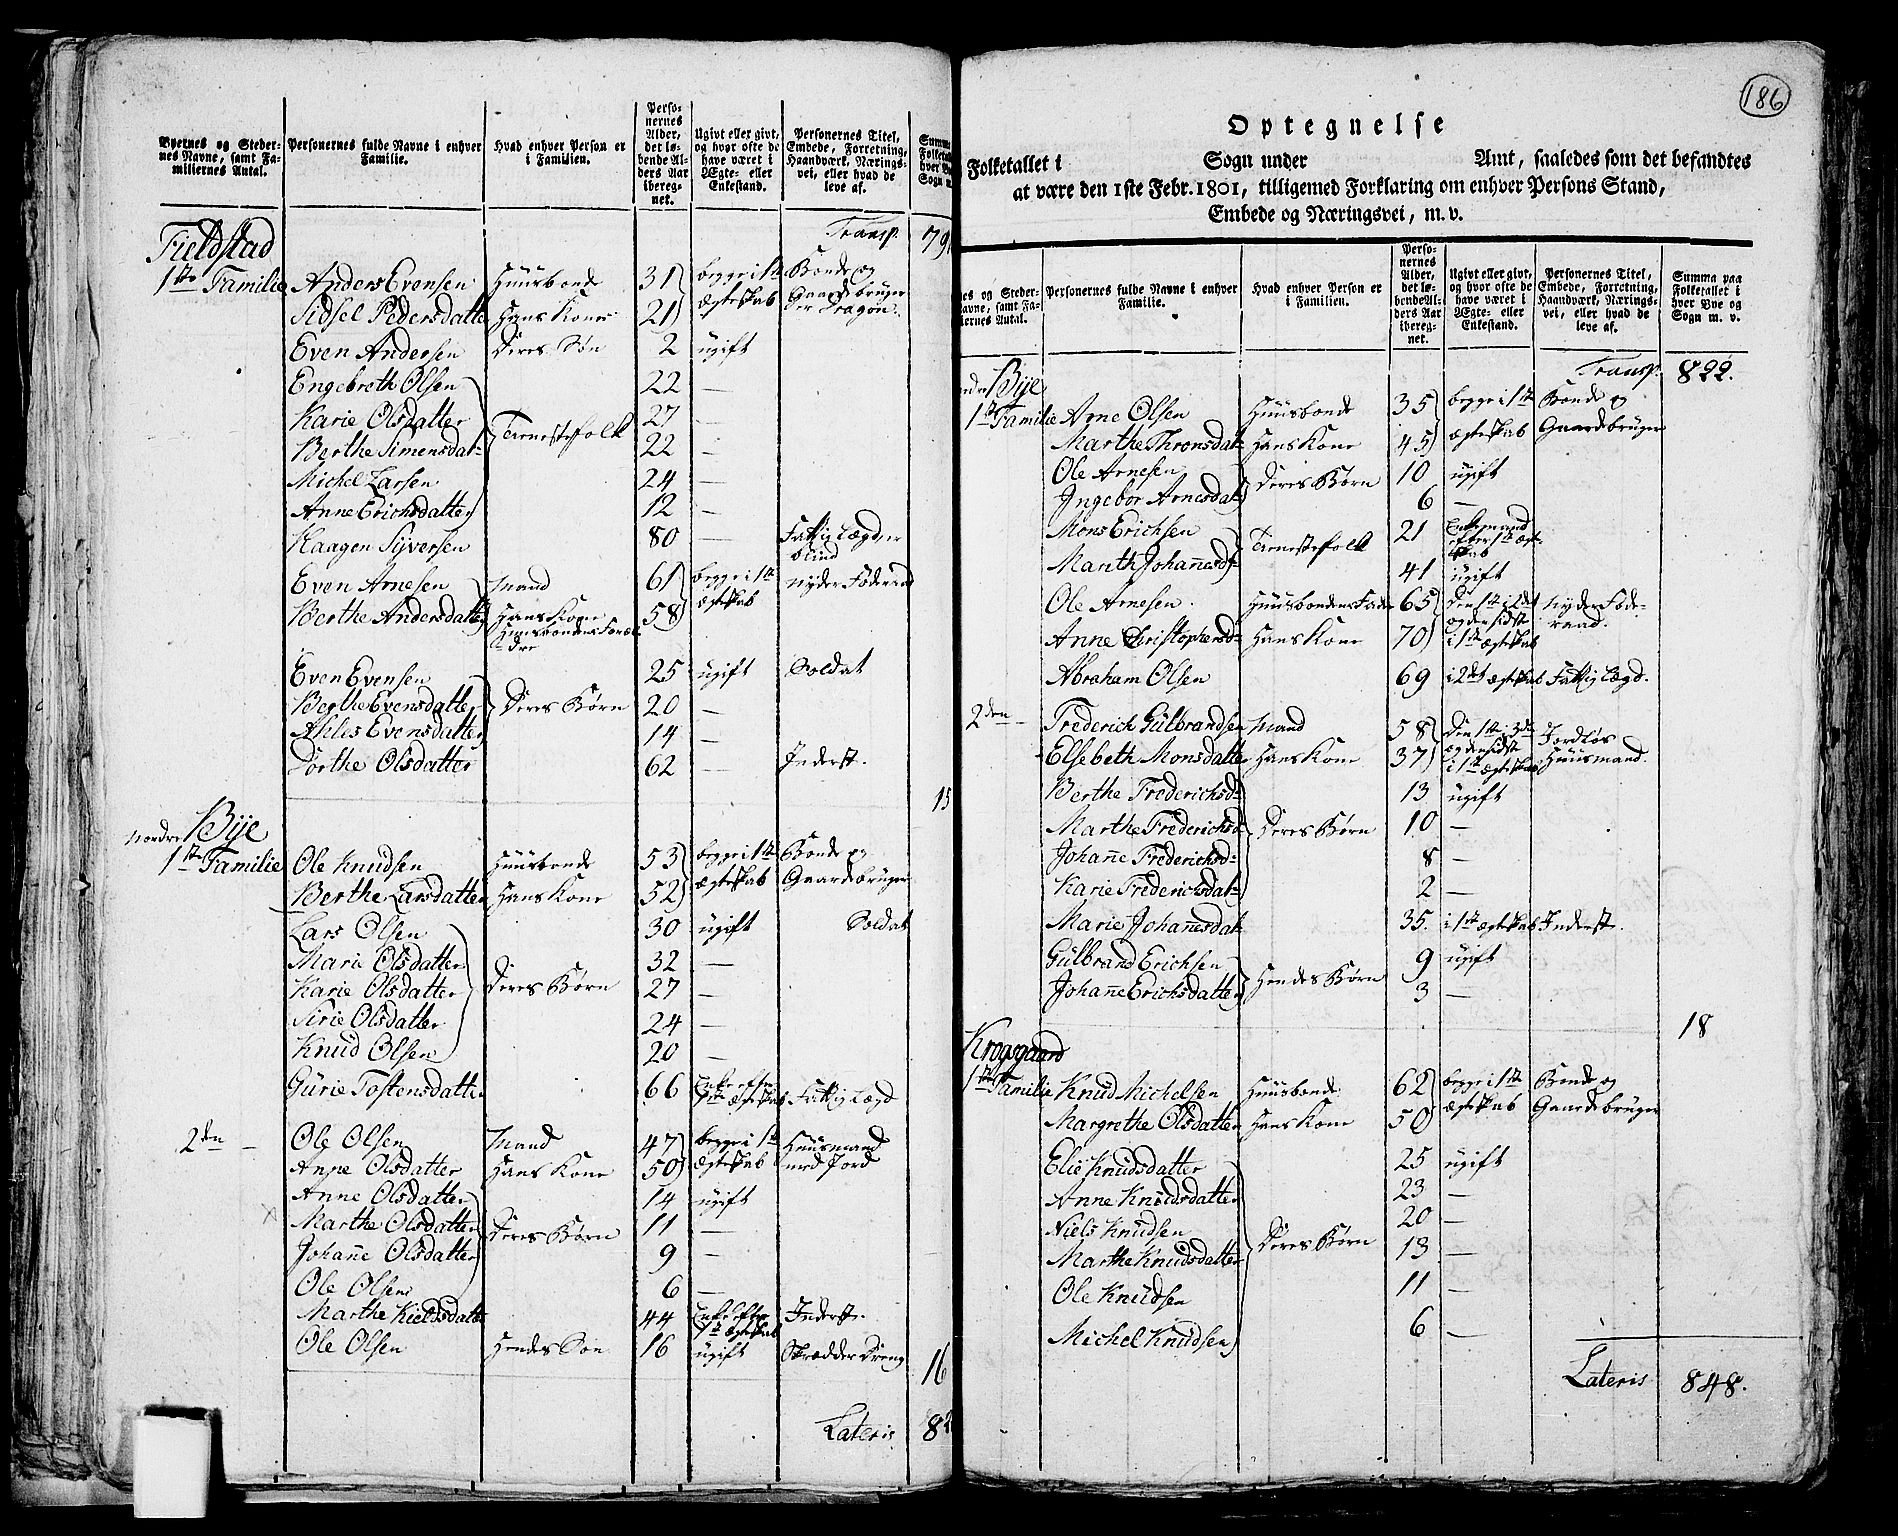 Byernes og Steder-
nes Navne, samt Fa-
miliernes Antal.
Personernes fulde Navne i enhver
Familie.
Hvad enhver Person er
i Familien.
Perso-
nernes
Alder,
det lø-
bende Al-
ders Aar
ibereg-
net.
Ugivt eller givt,
og hvor ofte de
have været i
Ægte- eller
Enkestand.
Personernes Titel,
Embede, Forretning,
Haandværk, Nærings-
vei, eller hvad de
leve af.
Transp. 79
Fieldstad
1ste Familie Anders Evensen Huusbonde 31 begge i 1ste Bonde og
Sidsel Pedersdatter Hans Kone 21 ægteskab Gaardebruger
Dragon.
Even Andersen Deres Søn 2 ugift
Engebreth Olsen 22 —
Karie Olsdatter 27 —
Tienestefolk
Berthe Simensdat- 22 —
Michel Larsen 24 —
Anne Erichsdatter 12 —
Haagen Siversen 80 — Fattig Lægd, er
blind
Even Arnesen Mand 61 begge i 1ste nyder Føderaad
Berthe Andersdatter Hans Kone 58 ægteskab
Huusbondens Foræl-
dre
Even Evensen 25 ugift Soldat
Berthe Evensdatter Deres Børn 20 —
Ahles Evensdatter 14 —
Dorthe Olsdatter 62 — Inderst.
15
Nordre Bije
1ste Familie Ole Knudsen Huusbonde 53 begge i 1ste Bonde og
Berthe Larsdatter Hans Kone 52 ægteskab Gaardebruger
Lars Olsen 30 ugift Soldat
Marie Olsdatter 32 —
Karie Olsdatter Deres Børn 27 —
Sirie Olsdatter 24 —
Knud Olsen 20 —
Gürie Tostensdatter 66 Enke efter
1ste ægteskab Fattig Lægd
2den — Ole Olsen Mand 47 begge i 1ste Huusmand
Anne Olsdatter Hans Kone 50 ægteskab med Jord
Anne Olsdatter 14 ugift
Marthe Olsdatter Deres Børn 11 —
Johanne Olsdatter 9 —
Ole Olsen 6 —
Marthe Kieldsdatter 44 Enke efter Inderst.
1ste ægteskab
Ole Olsen Hendes Søn 16 ugift Skrædder Dreng
16
Lateris 82
186
Optegnelse
Folketallet i Sogn under Amt, saaledes som det befandtes
at være den 1ste Febr. 1801, tilligemed Forklaring om enhver Persons Stand,
Embede og Næringsvei, m. v.
nes og Steder-
avne, samt Fa-
iernes Antal.
Personernes fulde Navne i enhver
Familie.
Hvad enhver Person er
i Familien.
Perso-
nernes
Alder,
det lø-
bende Al-
ders Aar
ibereg-
net.
Ugivt eller givt,
og hvor ofte de
have været i
Ægte- eller
Enkestand.
Personernes Titel,
Embede, Forretning,
Haandværk, Nærings-
vei, eller hvad de
leve af.
Summa paa
Folketallet i
hver Bye og
Sogn m. v.
Transp. 822.
Bije
1ste Familie Arne Olsen Huusbonde 35 begge i 1ste Bonde og
Marthe Thronsdat- Hans Kone 45 ægteskab Gaardebruger
Ole Arnesen Deres Børn 10 ugift
Ingebor Arnesdat- 6 —
Mons Erichsen 21 Enkemand
efter 1ste ægte-
skab
Tienestefolk
Marith Johannesd- 41 ugift
Ole Arnesen Huusbondens Fader 65 Den 1ste i 2det Nyder Føde-
og den sidst raad.
Anne Christophersd- Hans Kone 70 i 1ste ægteskab
Abraham Olsen 69 i 2det ægteskab Fattig Lægd.
2den — Frederich Gülbrandsen Mand 58 Den 1ste i 3die Jordløs
og den sidst
Elsebeth Monsdatter Hans Kone 37 i 1ste ægteskab Huusmand.
Berthe Frederichsd- 13 ugift
Marthe Frederichsd- Deres Børn 10 —
Johanne Frederichsd- 8 —
Karie Frederichsdat- 2 —
Marie Johannesdat- 35. i 1ste ægteskab Inderst.
Gülbrand Erichsen 9 ugift
Hendes Børn
Johanne Erichsdatter 3 —
18
Krogsgaard
1ste Familie Knud Michelsen Huusbonde 62 begge i 1ste Bonde og
Margrethe Olsdatter Hans Kone 50 ægteskab Gaardebruger
Elie Knudsdatter 25 ugift
Anne Knudsdatter 23 —
Niels Knudsen 20 —
Deres Børn
Marthe Knudsdatter 13 —
Ole Knudsen 11 —
Michel Knudsen 6 —
Lateris 848.